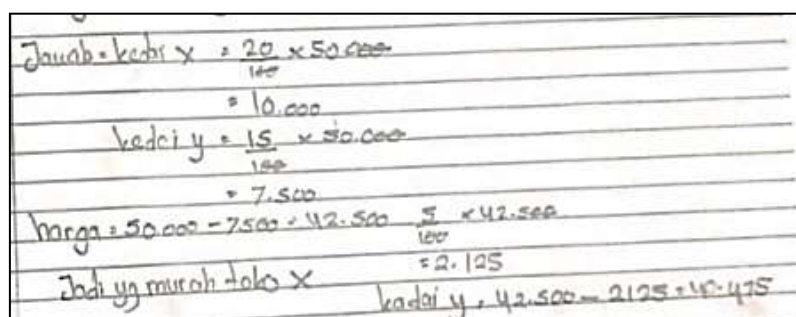 Jawab = kedai X = 20/100 x 50.000
= 10.000
kedai y = 15/100 x 50.000
= 7.500
harga = 50.000 - 7500 = 42.500 5/100 x 42.500
= 2.125
Jadi yg murah toko X
kadai y = 42.500 - 2125 = 40.475